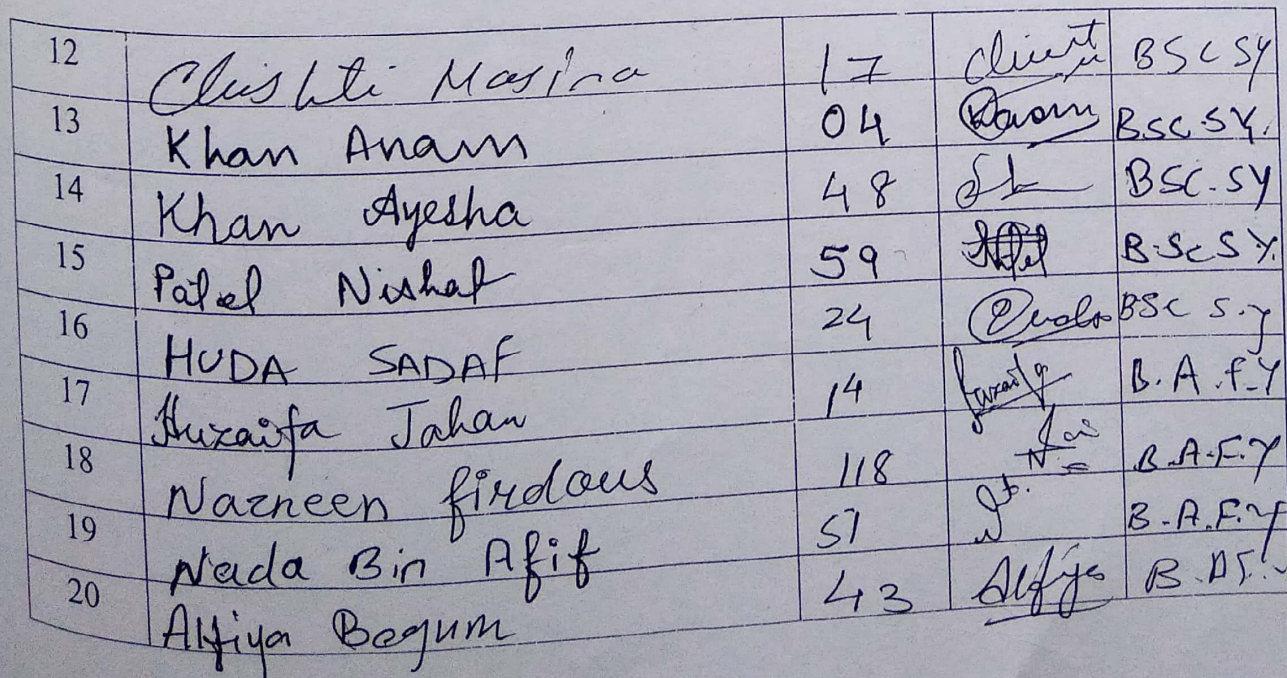 12 Chishti Masira 17 BSC SY
13 Khan Anam 04 BSC SY.
14 Khan Ayesha 48 BSC.SY
15 Patel Nishat 59 B.Sc S Y.
16 HUDA SADAF 24 BSC S.y
17 Huzaifa Jahan 14 B.A.f.Y
18 Nazneen firdous 118 B.A.F.Y
19 Nada Bin Afif 51 B.A.F.Y
20 Alfiya Begum 43 Alfiya